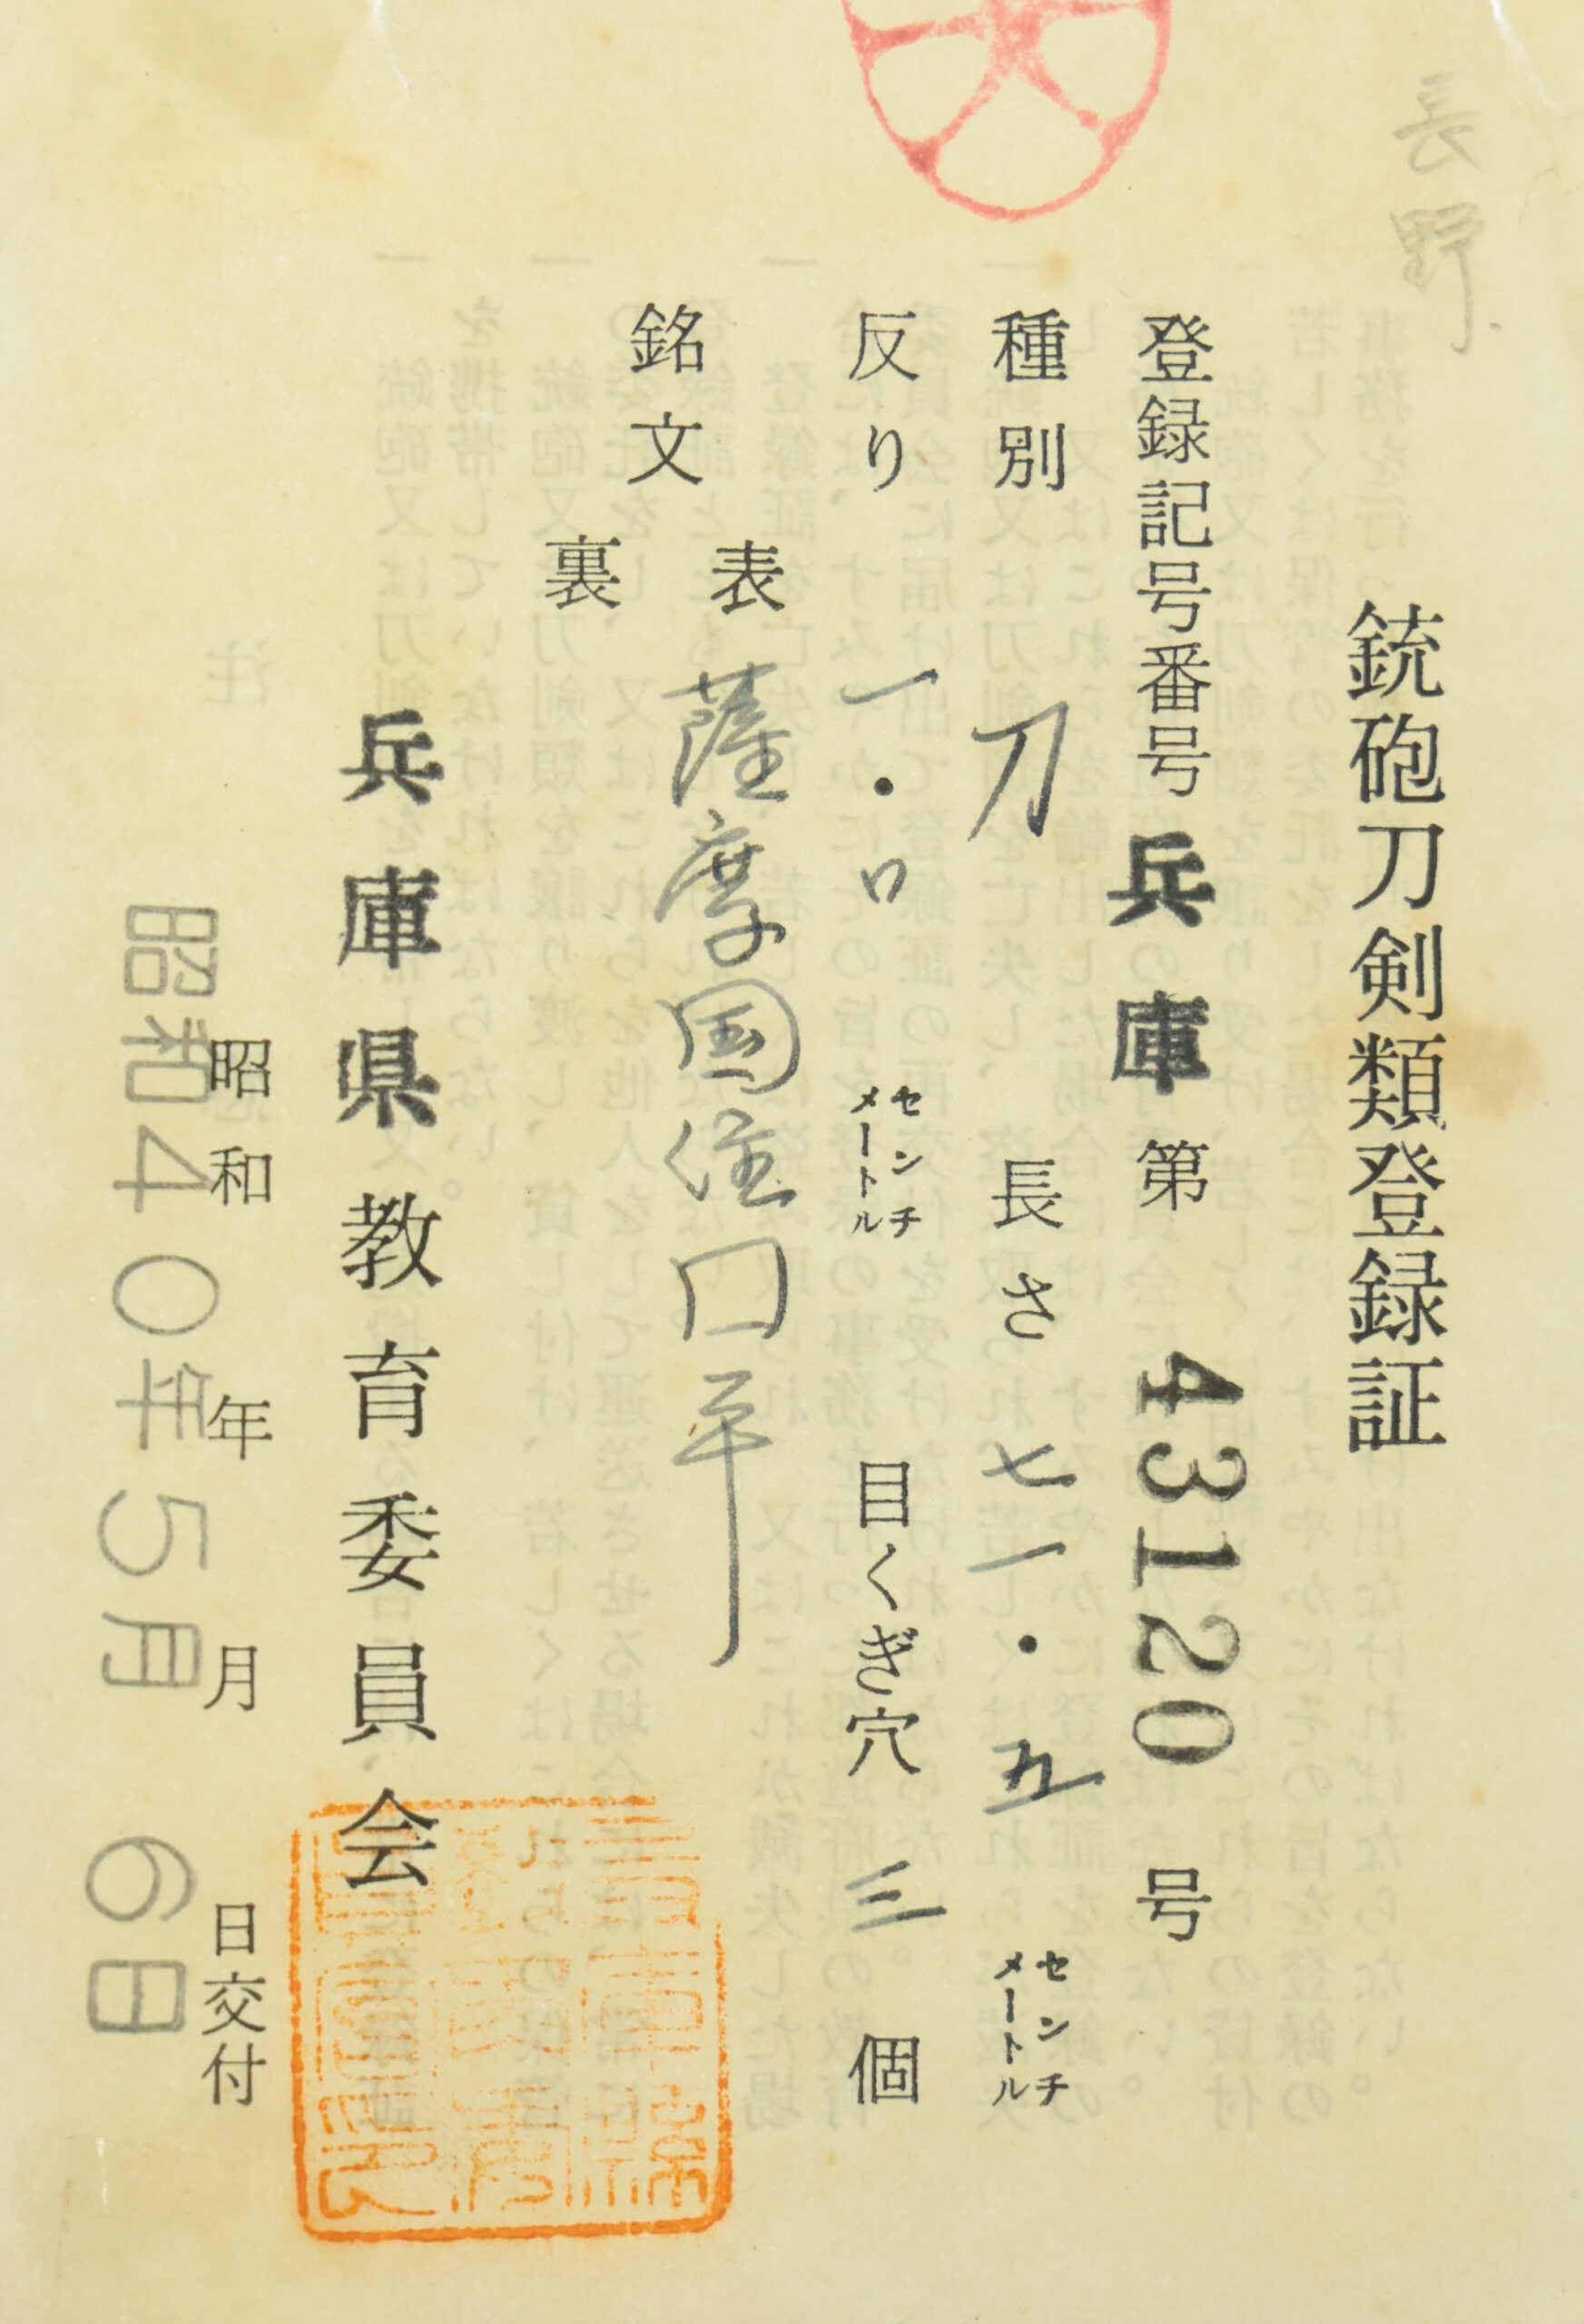 長野
銃砲刀剣類登録証
登録記号番号 兵庫 第 43120 号
種別 刀 長さ 七一・五 センチメートル
反り 一・口 センチメートル 目くぎ穴 三 個
銘文
表 薩摩国住口平
裏
兵庫県教育委員会
昭和 年 月 日交付
昭和40年5月6日